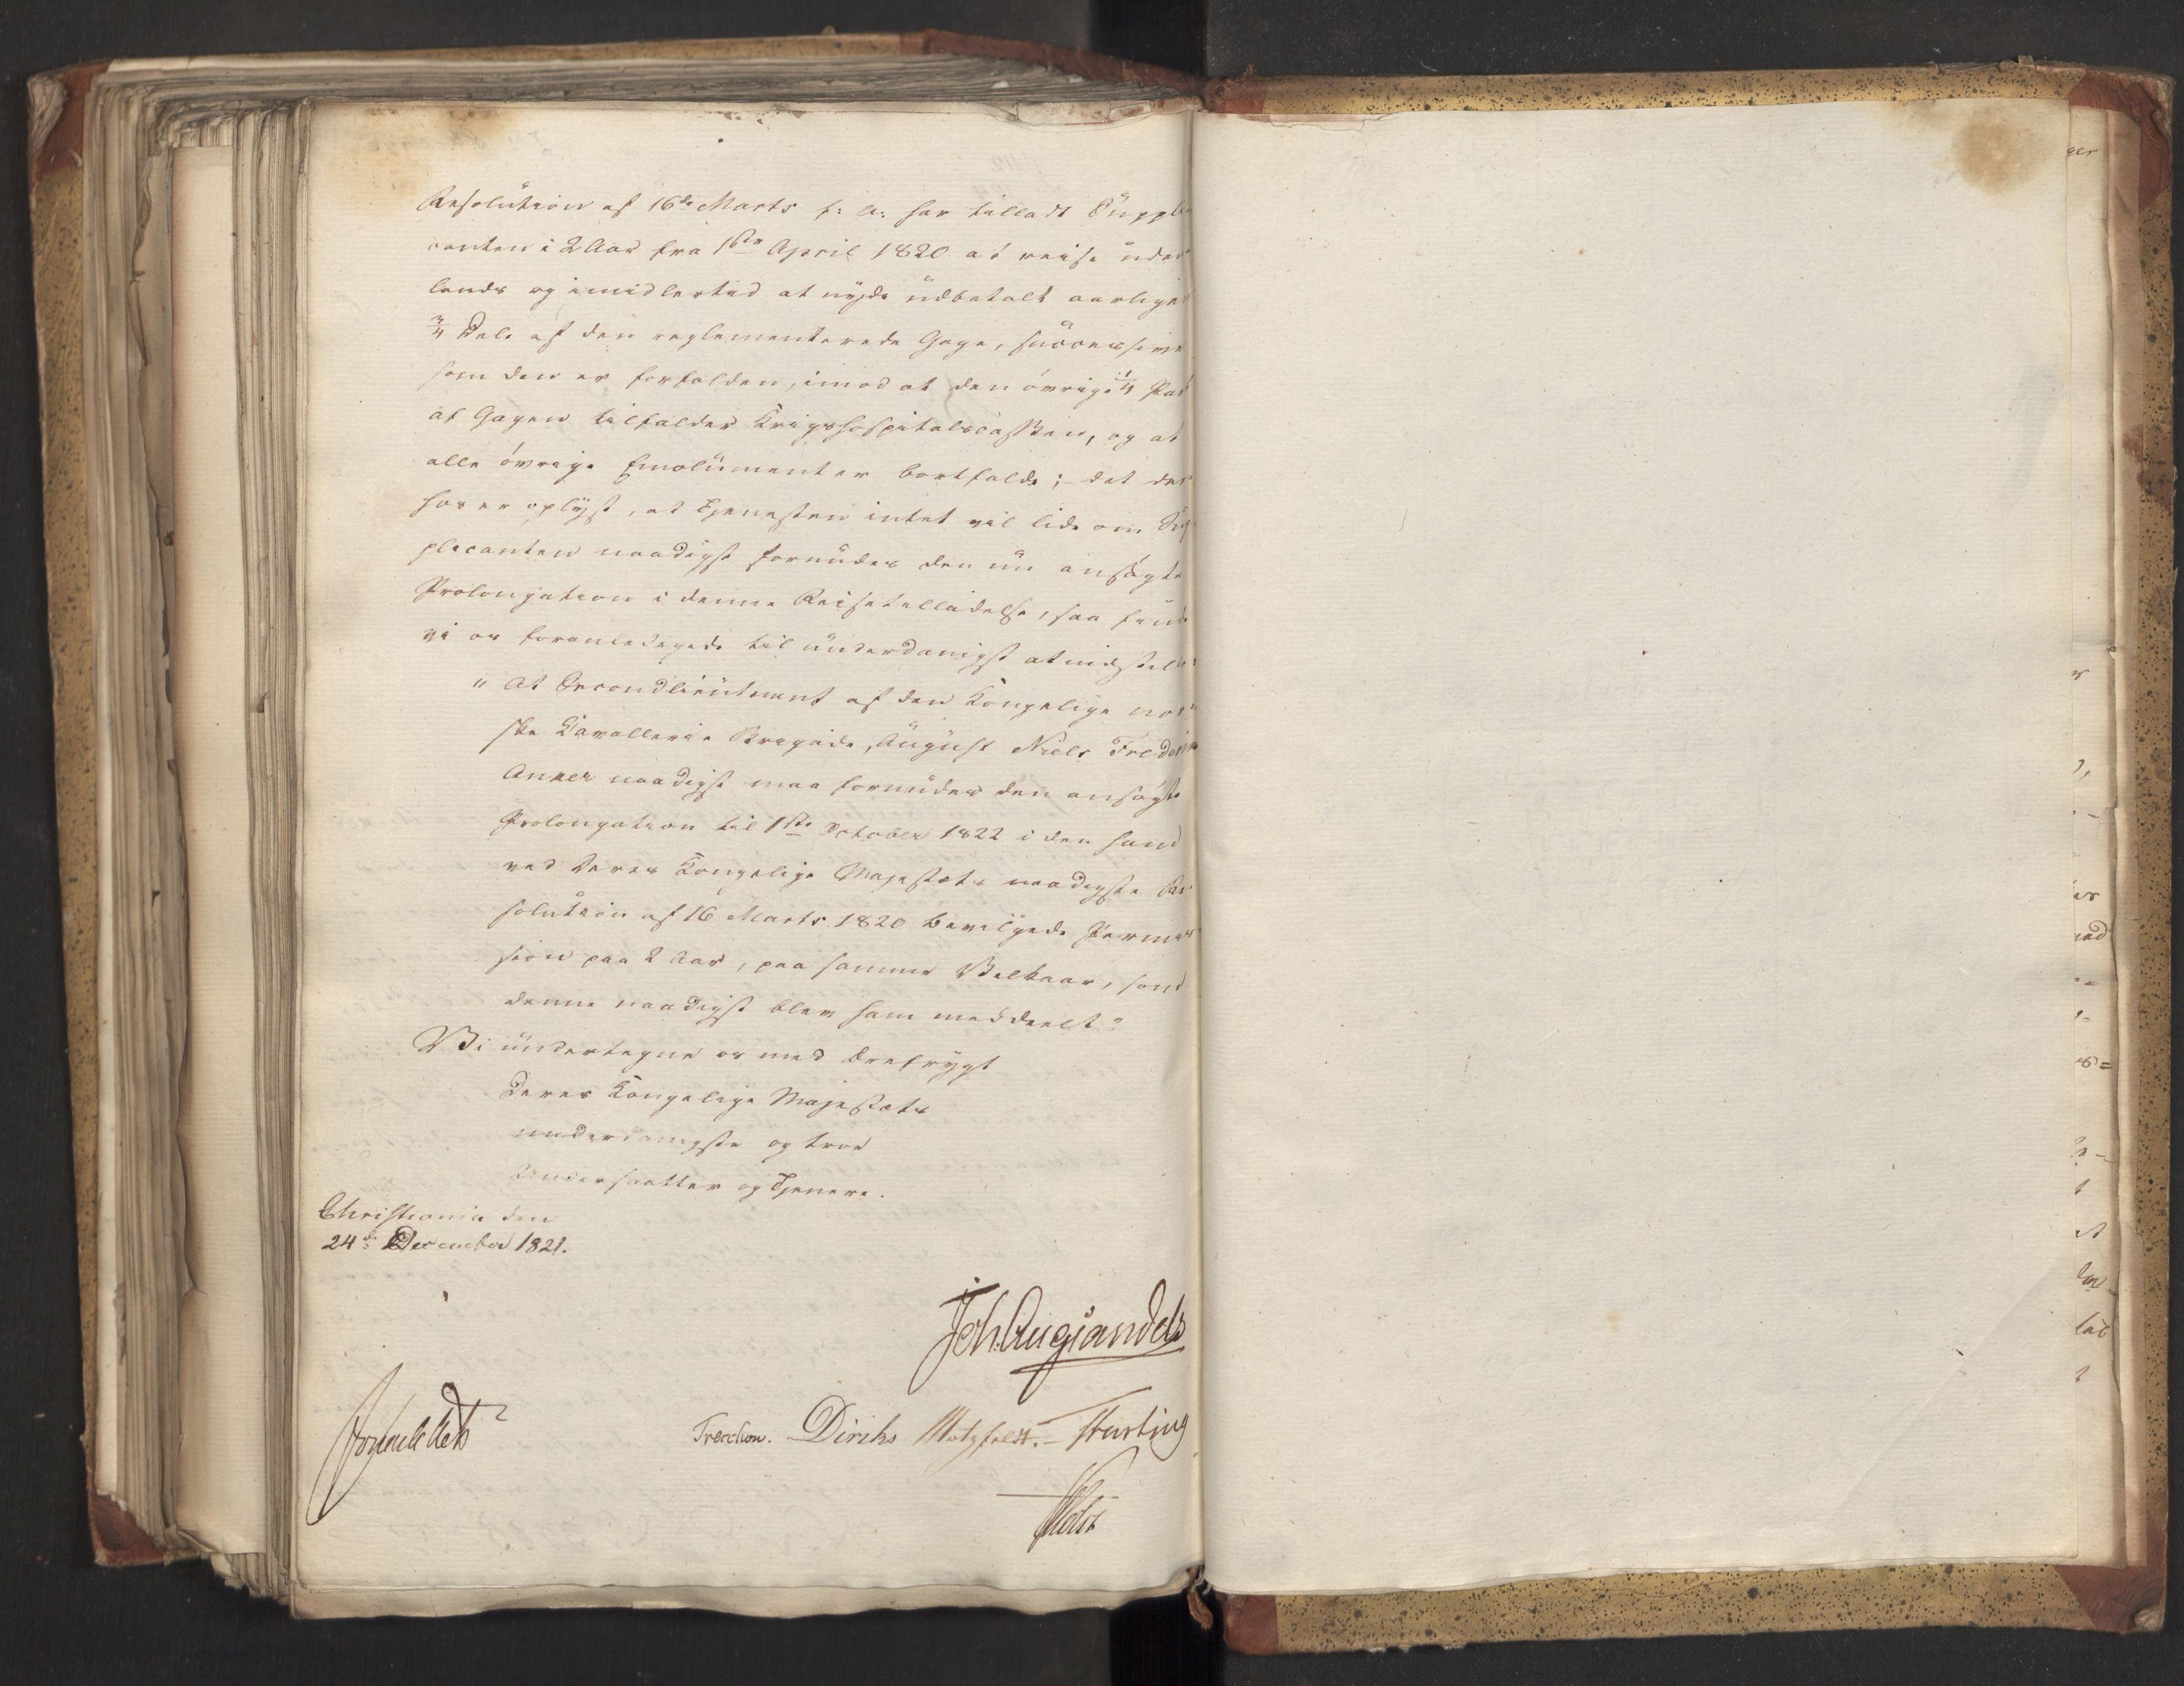 Resolution af 16de Marts f: A: har tilladt Suppli
canten i 2 Aar fra 1ste April 1820 at reise uden
lands og imidlertid at nyde udbetalt aarligen
3/4 Dele af den reglementerede Gage, successive
som den er forfalden, imod at den øvrige 1/4 Part
af Gagen tilfalder Krigshospitalscassen, og at
alle øvrige Emolumenter bortfalde; - det der
hos er oplyst, at Tjenesten intet vil lide om Sup
plicanten naadigst forundes den nu ansøgte
Prolongation i denne Reisetilladelse, saa finde
vi os foranledigede til underdanigst at indstille
" At Secondlieutenant af den Kongelige nor
ske Cavallerie Brigade, August Niels Frederik
Anker naadigst maa forundes den ansøgte
Prolongation til 1ste October 1822 i den ham
ved Deres Kongelige Majestæts naadigste Re
solution af 16 Marts 1820 bevilgede Permis
sion paa 2 Aar, paa samme Vilkaar, som
denne naadigst blev ham meddeelt"
Vi undertegne os med Ærefrygt
Deres Kongelige Majestæts
underdanigste og troe
Undersaatter og Tjenere.
Christiania den
24de December 1821.
Joh. Aug. Sandels
Treschow. Diriks Motzfeldt. - Herting
Holst